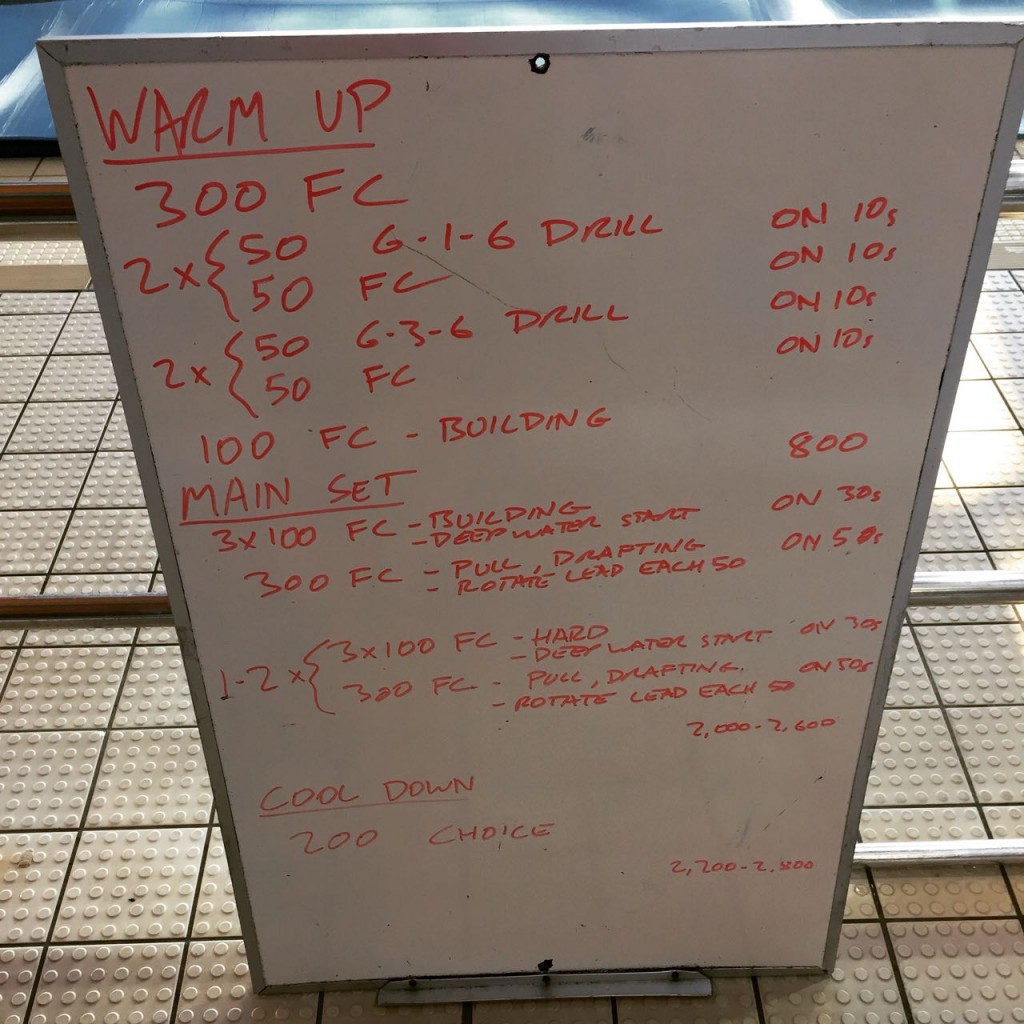 WARM UP
300 FC
2x { 50 6-1-6 DRILL ON 10s
50 FC ON 10s
2x { 50 6-3-6 DRILL ON 10s
50 FC ON 10s
100 FC - BUILDING
800
MAIN SET
3x100 FC - BUILDING ON 30s
- DEEP WATER START
300 FC - PULL, DRAFTING ON 50s
- ROTATE LEAD EACH 50
1-2x { 3x100 FC - HARD ON 30s
- DEEP WATER START
300 FC - PULL, DRAFTING. ON 50s
- ROTATE LEAD EACH 50
2,000-2,600
COOL DOWN
200 CHOICE
2,200-2,800